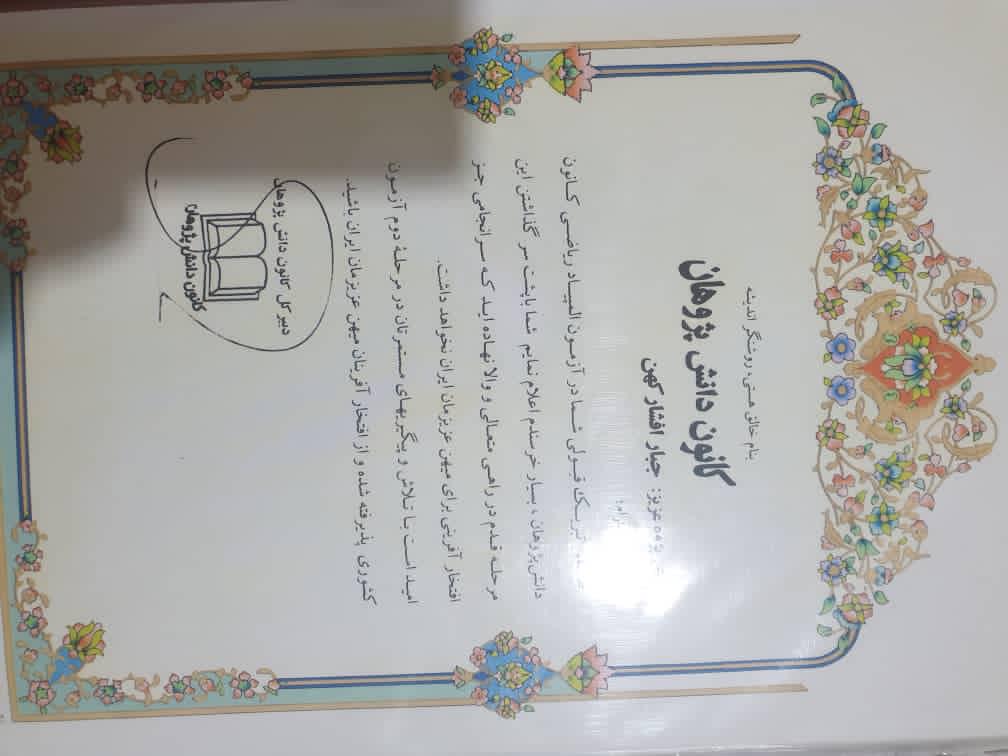 بنام خالق هستی، روشنگر اندیشه
کانون دانش پژوهان
عزیز: جبار افشار کهن
تبریک قبولی شما در آزمون المپیاد ریاضی کانون
دانش‌پژوهان، بسیار خرسندم اعلام نمایم شما با پشت سر گذاشتن این
مرحله قدم در راهی متعالی و والا نهاده اید که سرانجامی جز
افتخار آفرینی برای میهن عزیزمان ایران نخواهد داشت.
امید است با تلاش و پیگیریهای مستمرتان در مرحلهٔ دوم آزمون
کشوری پذیرفته شده و از افتخار آفرینان میهن عزیزمان ایران باشید.
دبیر کل کانون دانش پژوهان
کانون دانش پژوهان